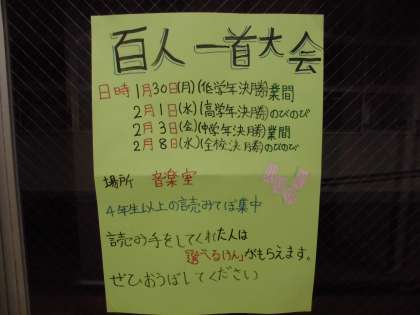 百人一首大会
日時 1月30日(月)(低学年決勝)業間
2月1日(水)(高学年決勝)のびのび
2月3日(金)(中学年決勝)業間
2月8日(水)(全校決勝)のびのび
場所 音楽室
4年生以上の読みてぼ集中
読み手をしてくれた人は
「選べるけん」がもらえます。
ぜひおうぼしてください